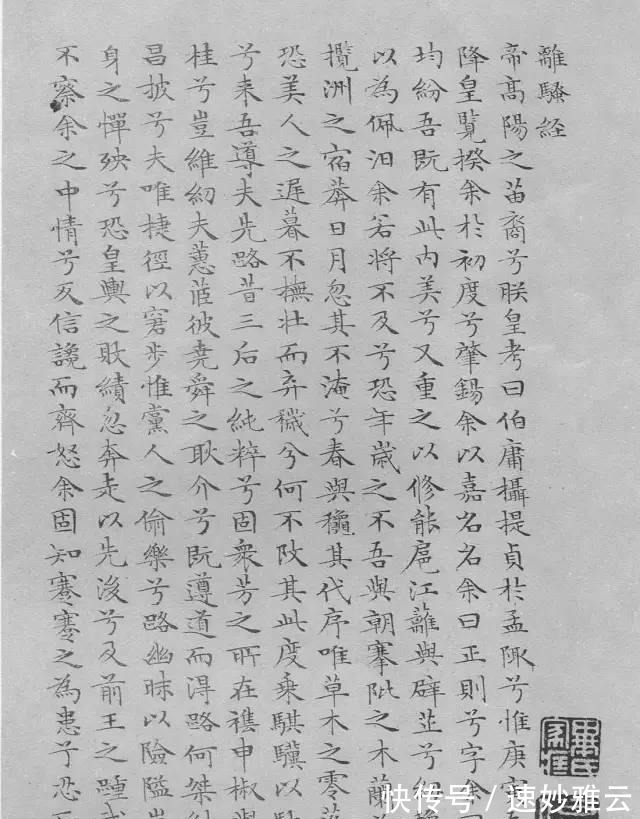 離騷経
帝高陽之苗裔兮朕皇考曰伯庸攝提貞於孟陬兮惟庚寅
降皇覽揆余於初度兮肇錫余以嘉名名余曰正則兮字余
均紛吾既有此内美兮又重之以修能扈江蘺與辟芷兮紉
以為佩汩余若將不及兮恐年歲之不吾與朝搴阰之木蘭
攬洲之宿莽日月忽其不淹兮春與穐其代序唯草木之零落
恐美人之遅暮不撫壯而弃穢兮何不改其此度乗騏驥以馳
兮来吾導夫先路昔三后之純粹兮固衆芳之所在襍申椒與
桂兮豈維紉夫蕙茝彼堯舜之耿介兮既遵道而淂路何桀紂
昌披兮夫唯捷徑以窘步惟黨人之偷樂兮路幽昧以險隘豈
身之憚殃兮恐皇輿之敗績忽奔走以先後兮及前王之踵武
不察余之中情兮反信讒而齊怒余固知謇謇之為患兮忍而
快传号 / 速妙雅云